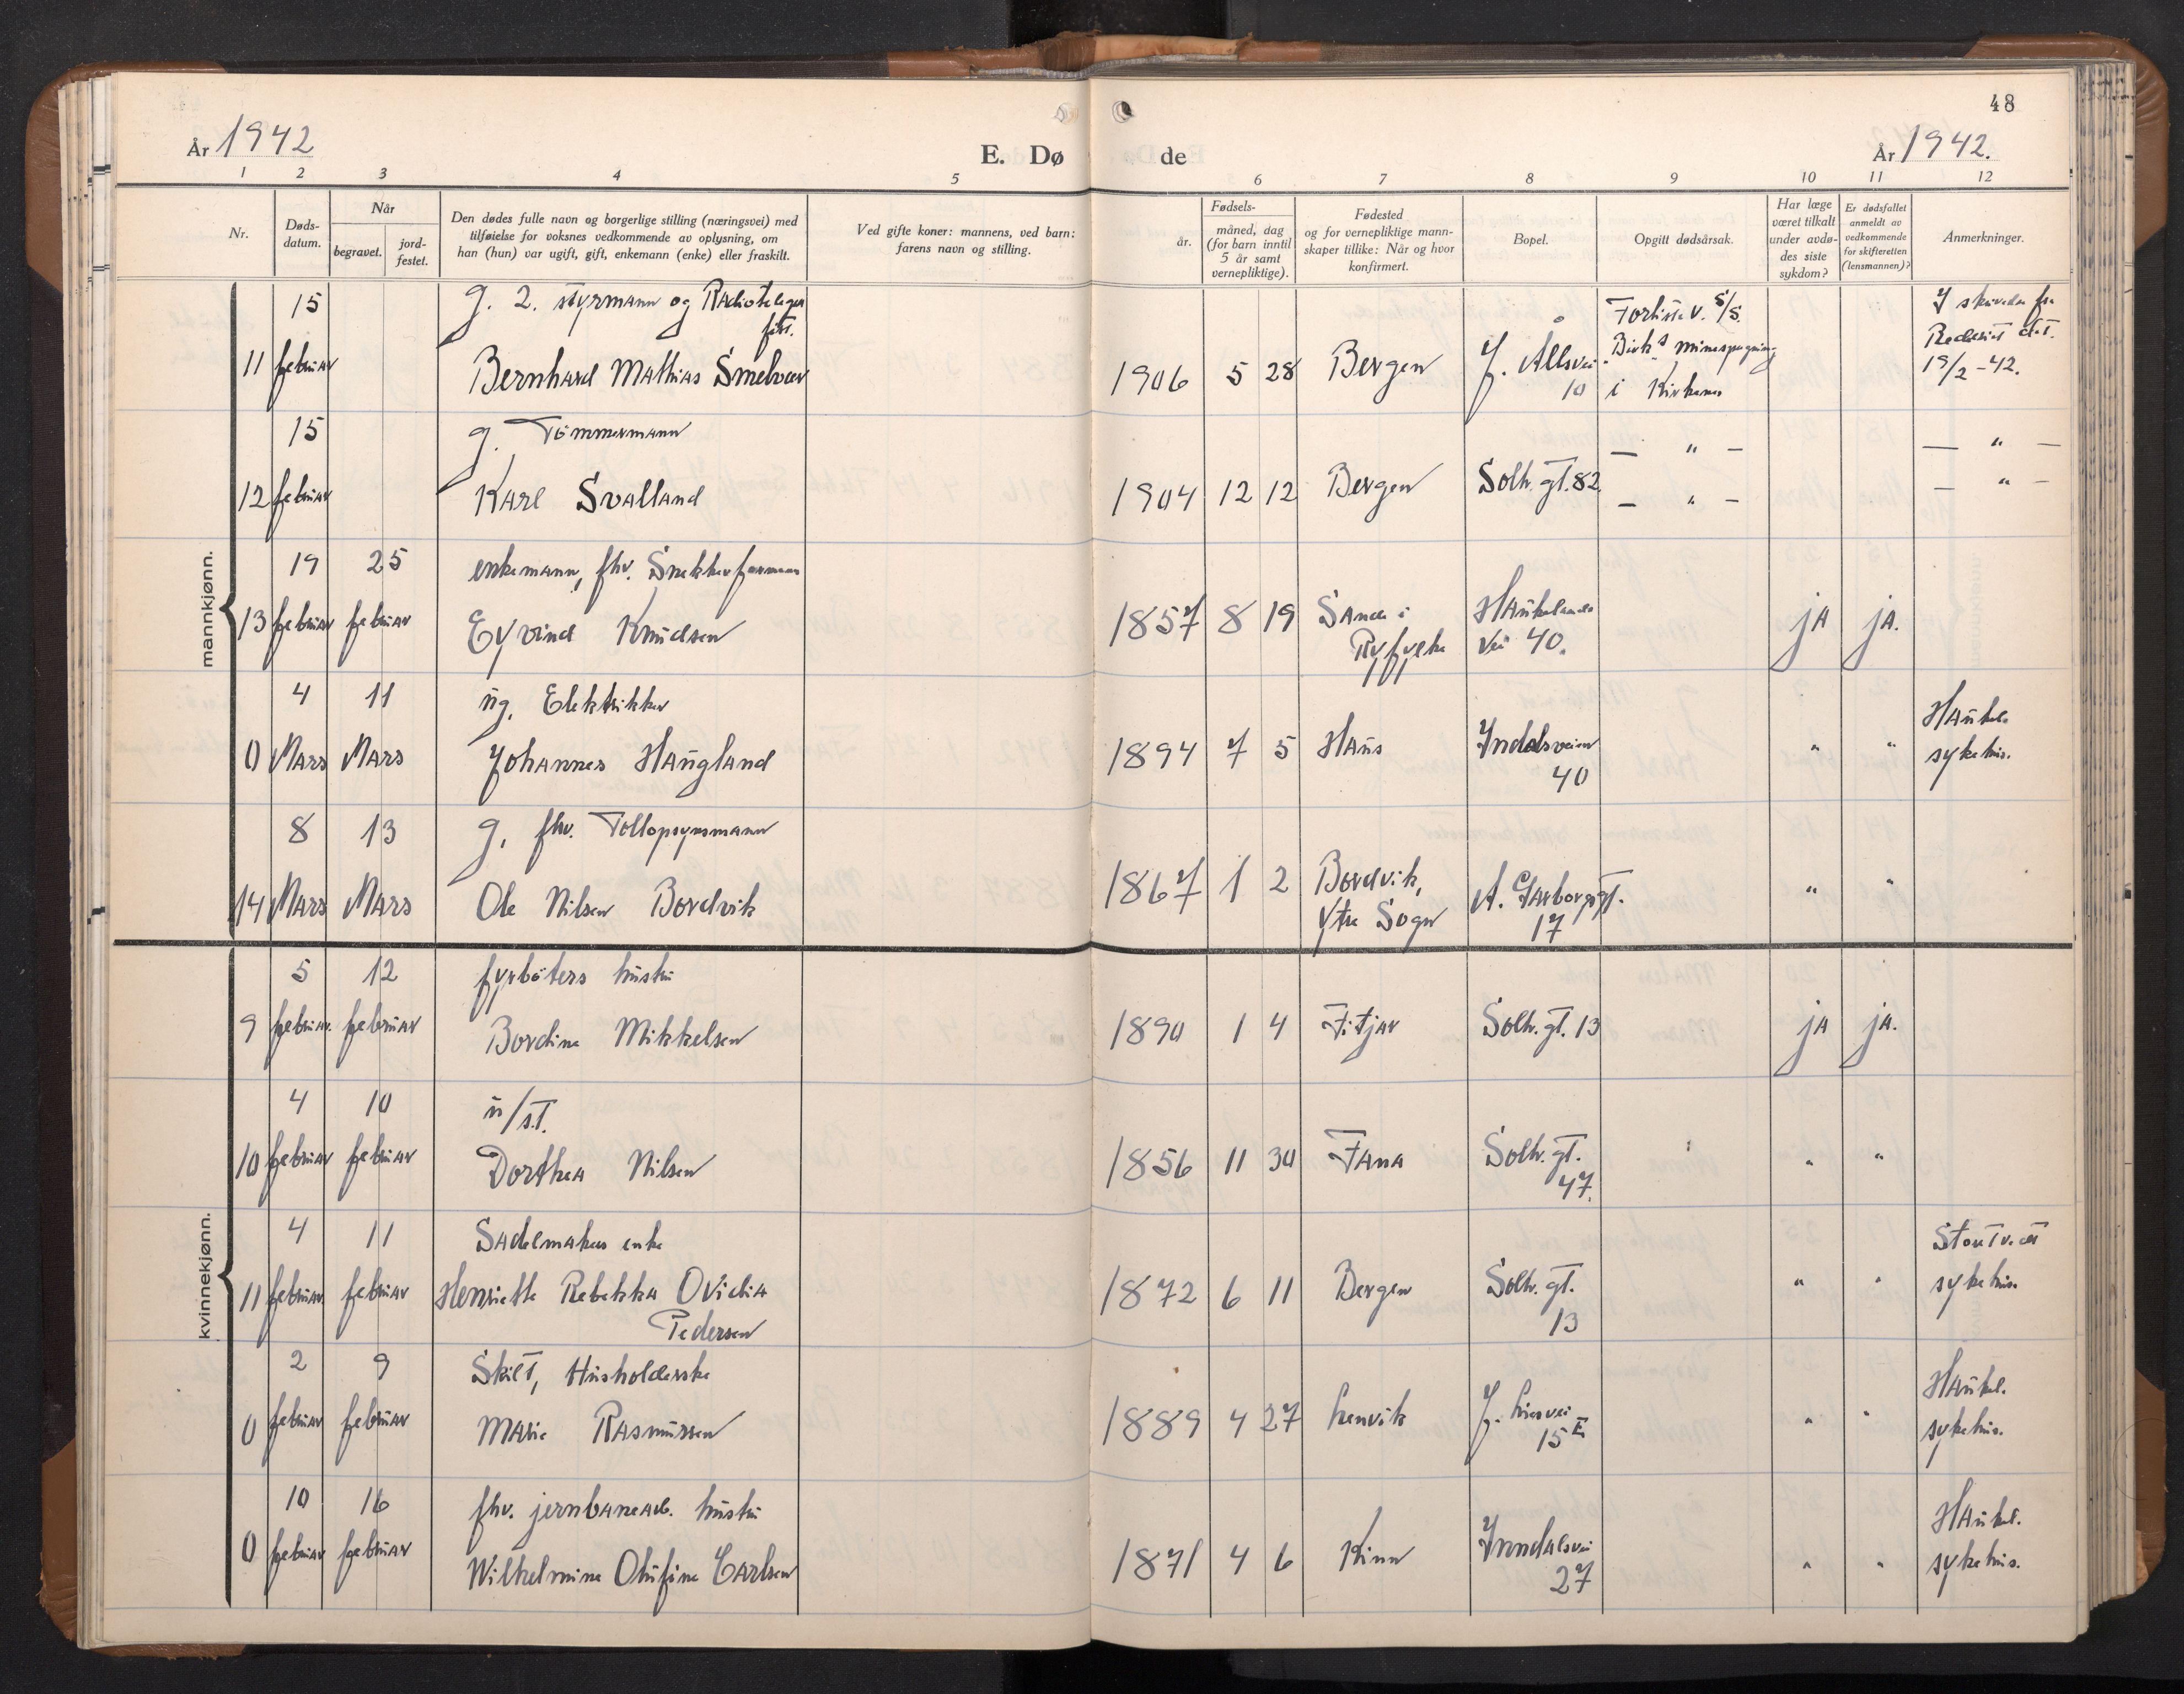 48
År 1942
E. Dø de
År 1942.
1 2 3 4 5 6 7 8 9 10 11 12
Nr.
Døds-
datum.
Når
begravet.
jord-
festet.
Den dødes fulle navn og borgerlige stilling (næringsvei) med
tilføielse for voksnes vedkommende av oplysning, om
han (hun) var ugift, gift, enkemann (enke) eller fraskilt.
Ved gifte koner: mannens, ved barn:
farens navn og stilling.
Fødsels-
år.
måned, dag
(for barn inntil
5 år samt
vernepliktige).
Fødested
og for vernepliktige mann-
skaper tillike: Når og hvor
konfirmert.
Bopel.
Opgitt dødsårsak.
Har læge
været tilkalt
under avdø-
des siste
sykdom?
Er dødsfallet
anmeldt av
vedkommende
for skifteretten
(lensmannen)?
Anmerkninger.
mannkjønn.
15 g. 2. styrmann og Forlist v. S/S. fra
"Birk"s minesprengning Rederiet dat.
11 februar Bernhard Mathias Smelvær 1906 5 28 Bergen J. Allsvei i Kirkenes 19/2-42.
10
15 g. Tömmermann — " — — " —
12 februar Karl Svalland 1904 12 12 Bergen Solh. gt. 82. — " — — " —
19 25 enkemann, fhv. Snekkerformann
13 februar februar Eyvind Knudsen 1857 8 19 Sande i Haukelands ja ja.
Ryfylke vei 40.
4 11 ug. Elektrikker Haukel.
0 Mars Mars Johannes Haugland 1894 7 5 Haus Indalsveien " " sykehus.
40
8 13 g. fhv. Tollopsynsmann
14 Mars Mars Ole Nilsen Bordvik 1867 1 2 Bordvik, A. Garborgsgt. " "
Ytre Sogn 17
kvinnekjønn.
5 12 fyrböters hustru
9 februar. februar Bordine Mikkelsen 1890 1 4 Fitjar Solh. gt. 13 ja ja.
4 10 u/st.
10 februar februar Dorthea Nilsen 1856 11 30 Fana Solh. gt. " "
47.
4 11 Sadelmakers enke
11 februar februar Henriette Rebekka Ovidia 1872 6 11 Bergen Solh. gt. " " sykehus.
Pedersen 13
2 9 Skilt, Husholderske Haukel.
0 februar februar Marie Rasmussen 1889 4 27 Lenvik J. Liesvei " " sykehus.
15 E
10 16 fhv. jernbanearb. hustru Haukel.
0 februar februar Wilhelmine Olufine Carlsen 1871 4 6 Kinn Inndalsvei " " sykehus.
27